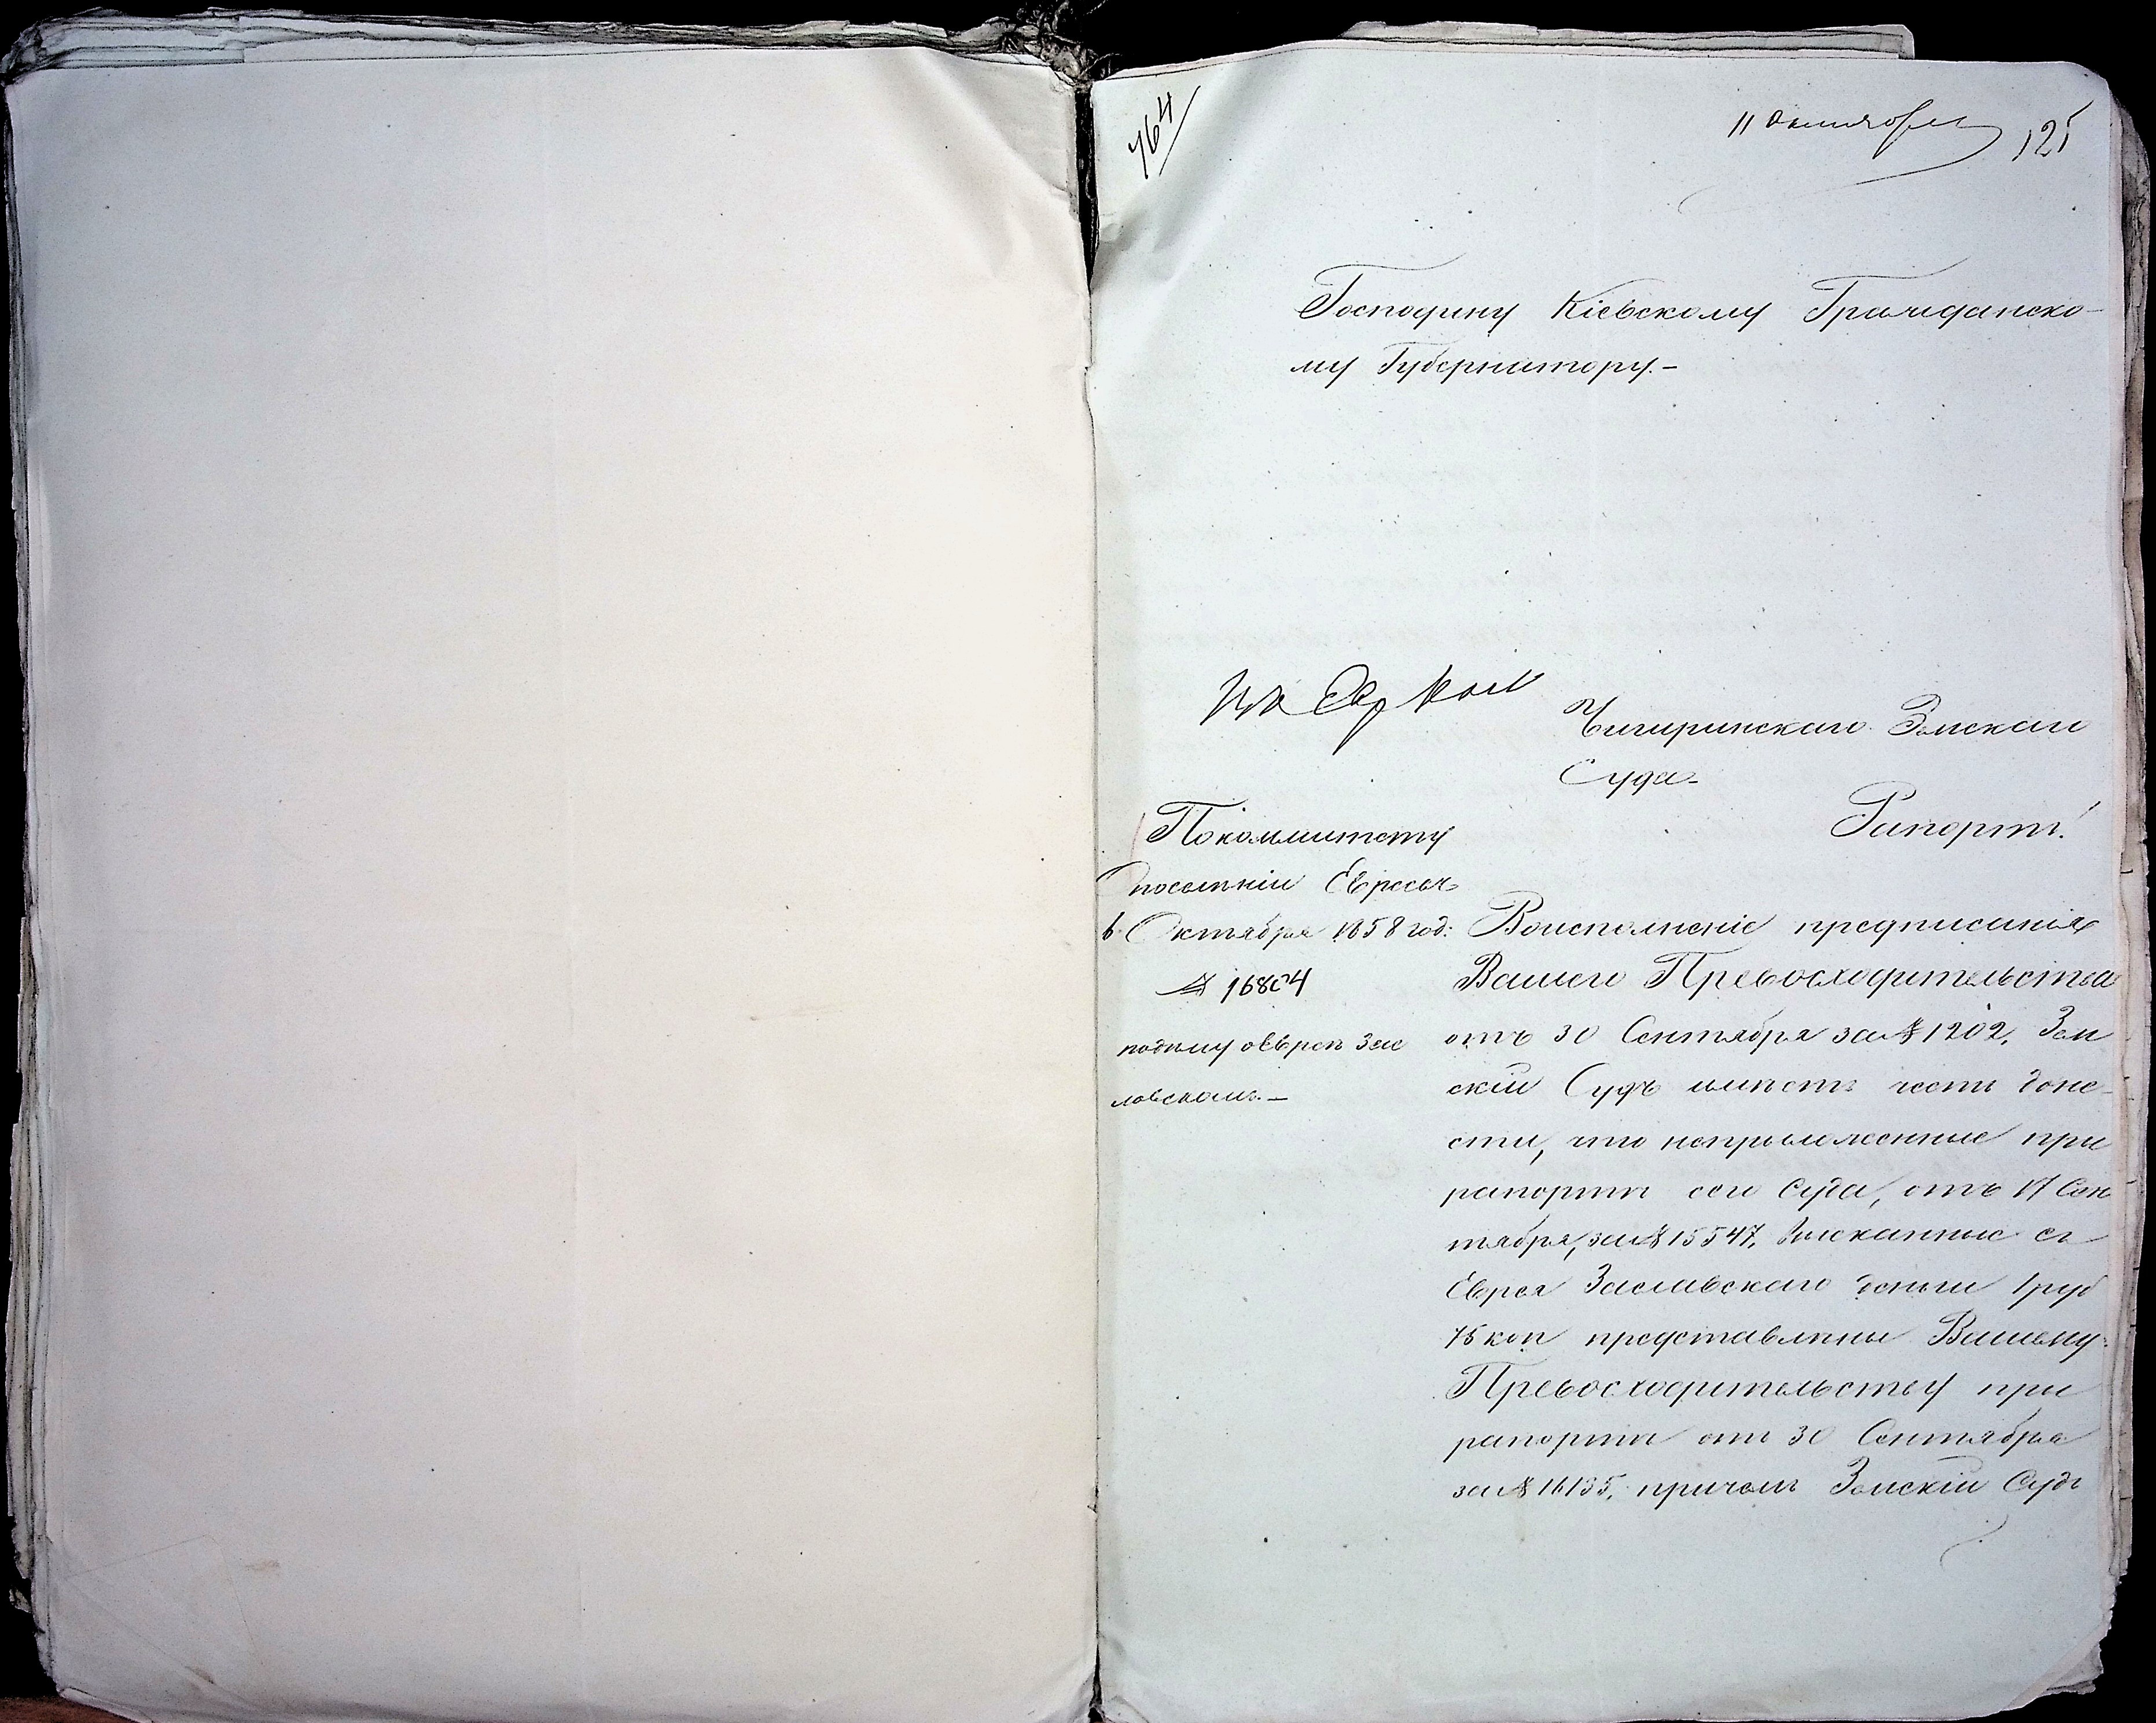 764
11 Октября
125
Господину Кіевскому Гражданско-
му Губернатору.-
Чигиринскаго Земскаго
Суда
Рапортъ.
По коммитету
поселенія Евреевъ
6 Октября 1858 год:
№ 16804
по дѣлу о Евреѣ Зас
лавскомъ.-
Во исполненіе предписанія
Вашего Превосходительства
отъ 30 Сентября за № 1202, Зем
скій Судъ имѣетъ честь доне-
сти, что неприложенные при
рапортѣ сего Суда, отъ 17 Сен
тября, за № 15547, взысканные съ
Еврея Заславскаго деньги 1 руб
75 коп представлены Вашему
Превосходительству при
рапортѣ отъ 30 Сентября
за № 16135, причемъ Земскій Судъ